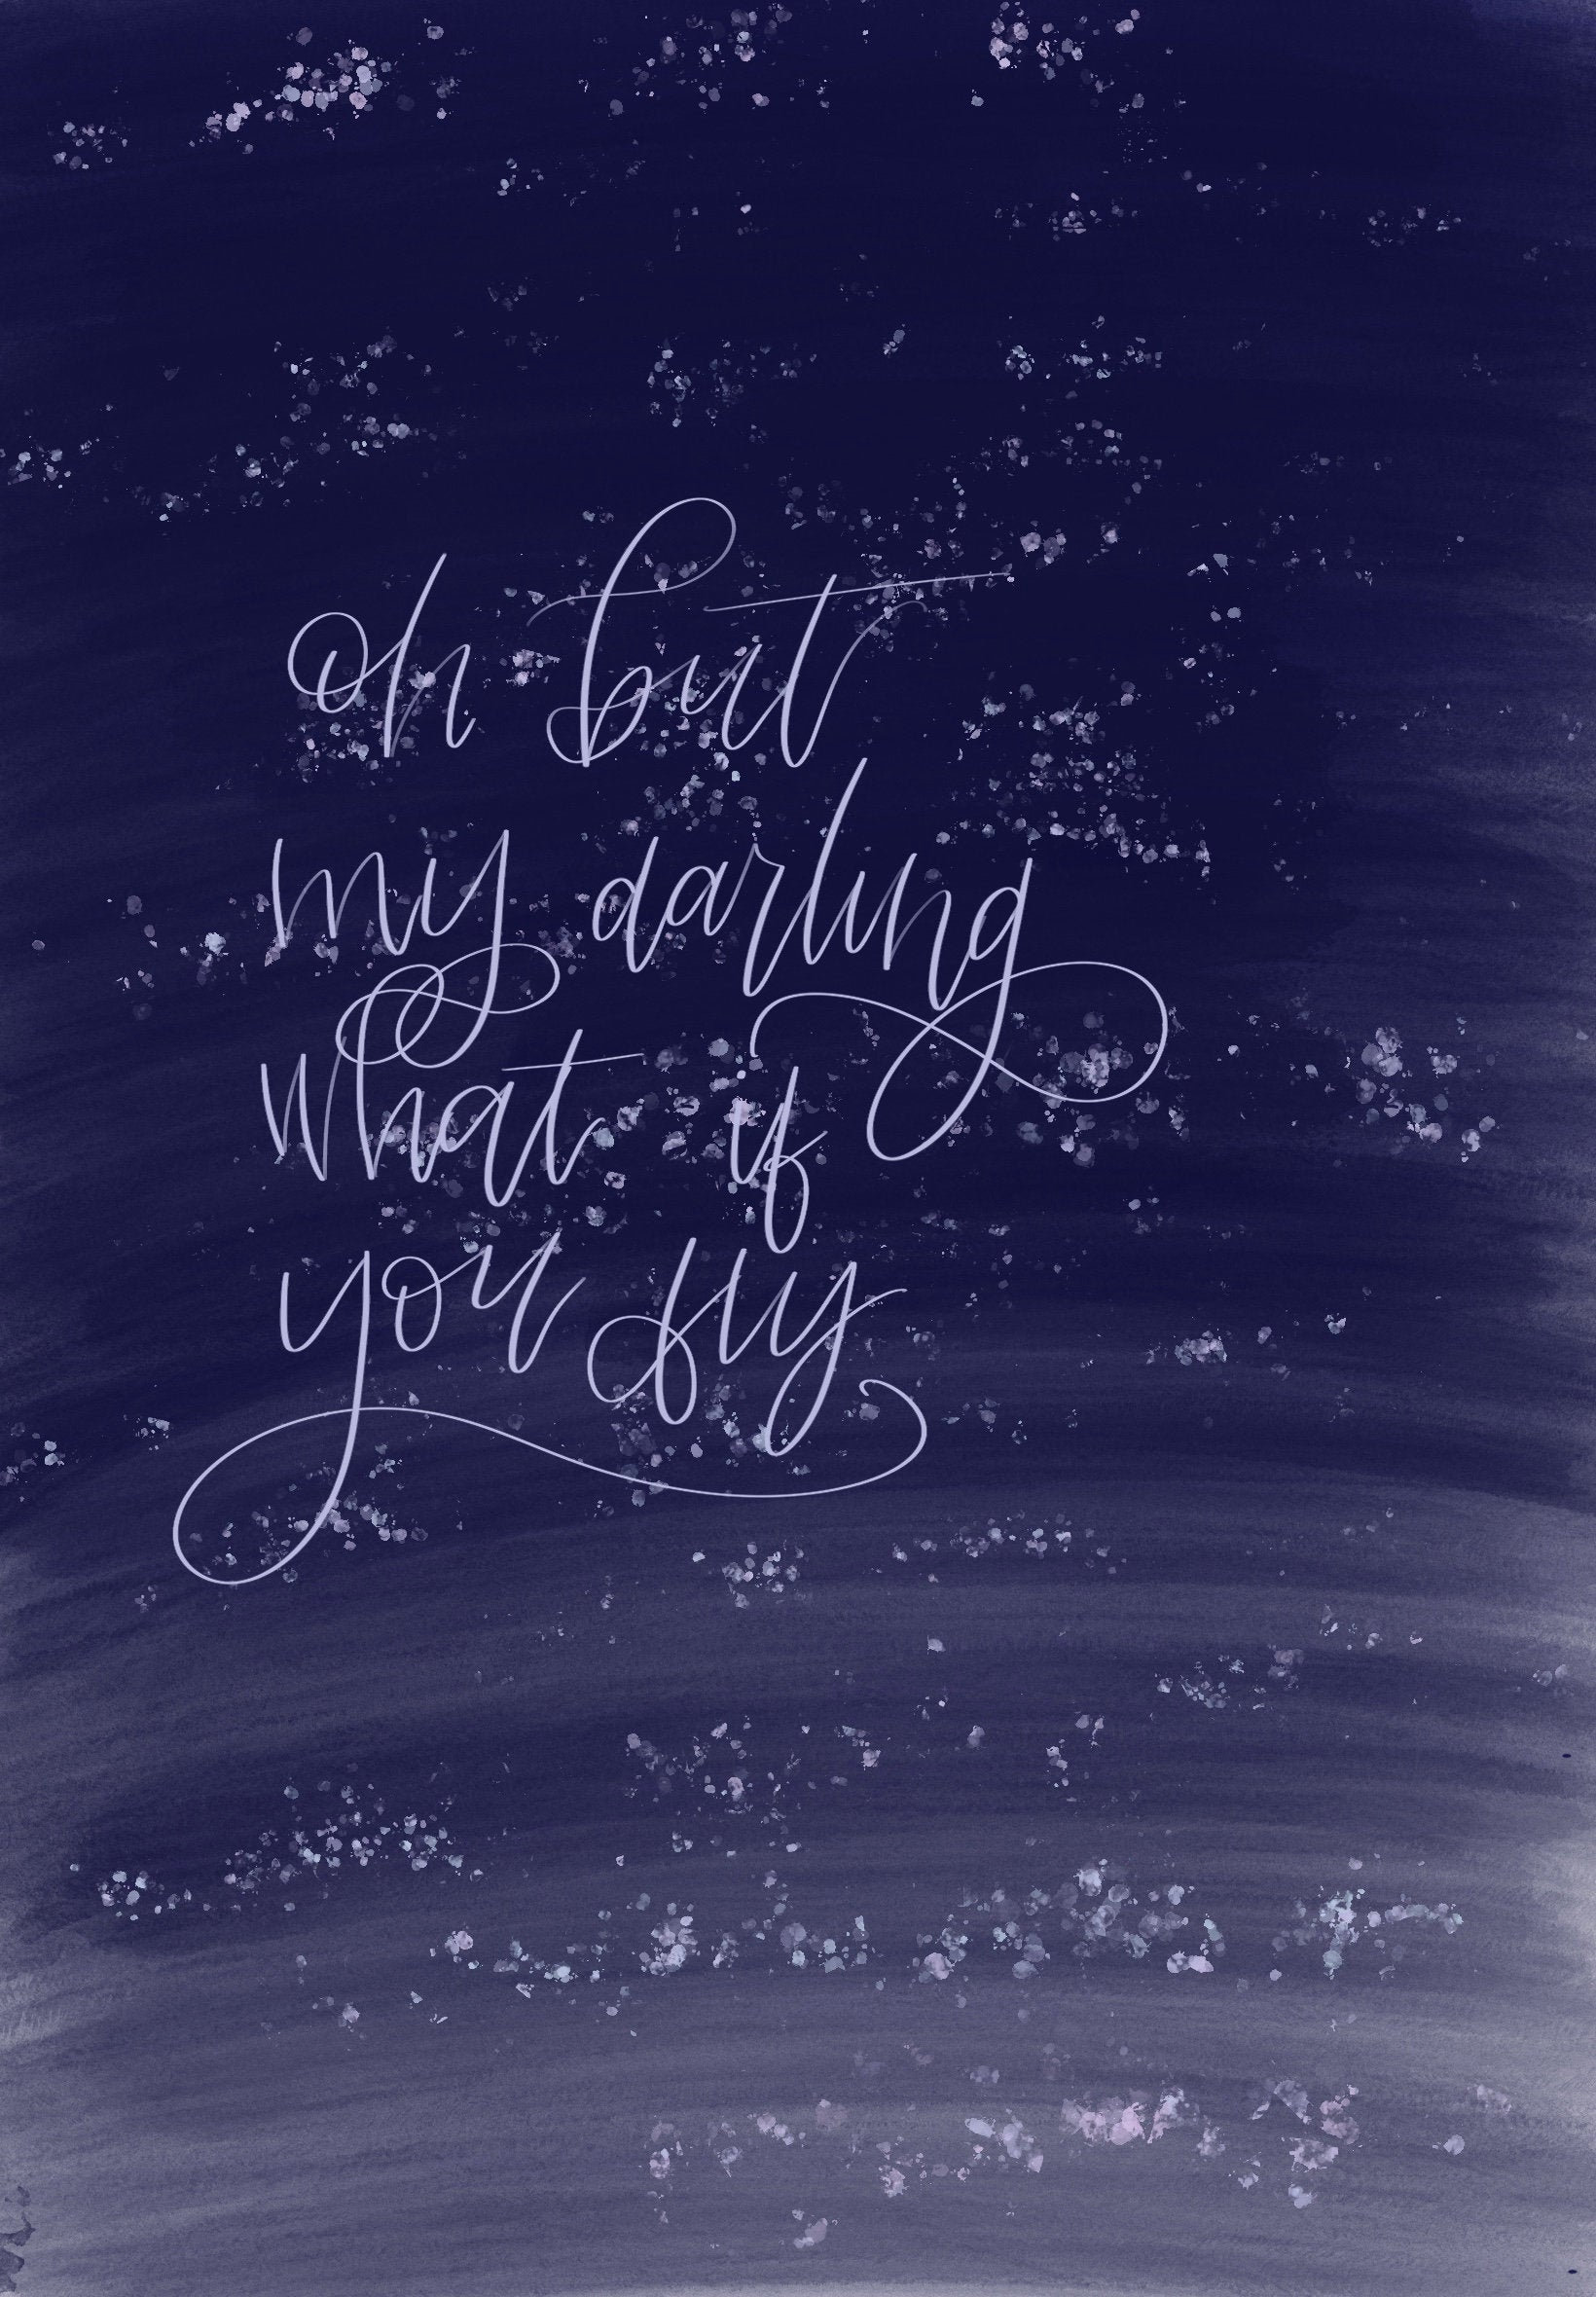 oh but
my darling
what if
you fly